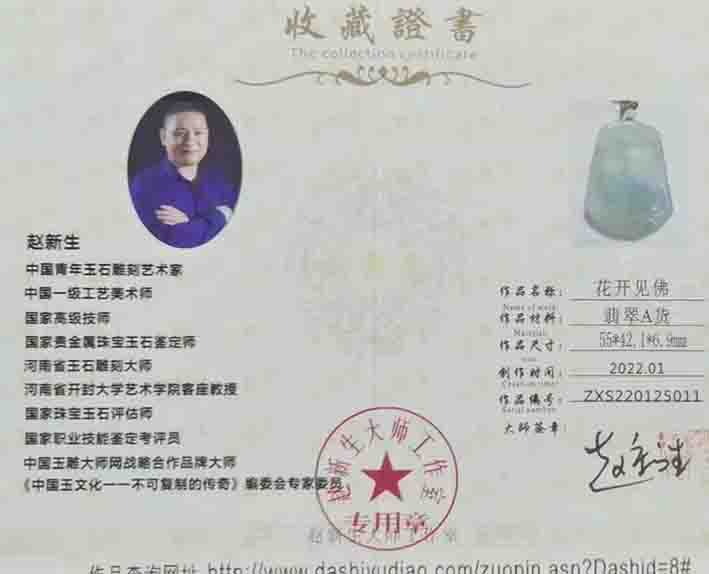 收藏證書
The collection certificate
赵新生
中国青年玉石雕刻艺术家
中国一级工艺美术师
国家高级技师
国家贵金属珠宝玉石鉴定师
河南省玉石雕刻大师
河南省开封大学艺术学院客座教授
国家珠宝玉石评估师
国家职业技能鉴定考评员
中国玉雕大师网战略合作品牌大师
《中国玉文化——不可复制的传奇》编委会专家委员
作品名称： 花开见佛
Name of work
作品材料： 翡翠A货
Material
作品尺寸： 55*42.1*6.9mm
size
创作时间： 2022.01
Creation time
作品编号： ZXS220125011
Serial number
大师签章：
赵新生
赵新生大师工作
专用章
赵新生大师工作室
作品查询网址 http://www.dashiyudiao.com/zuopin.asp?Dashid=8#